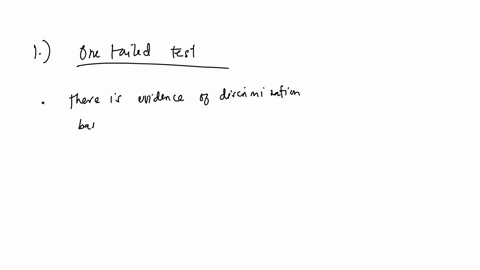 1.) One tailed test
• there is evidence of discrimination
bas